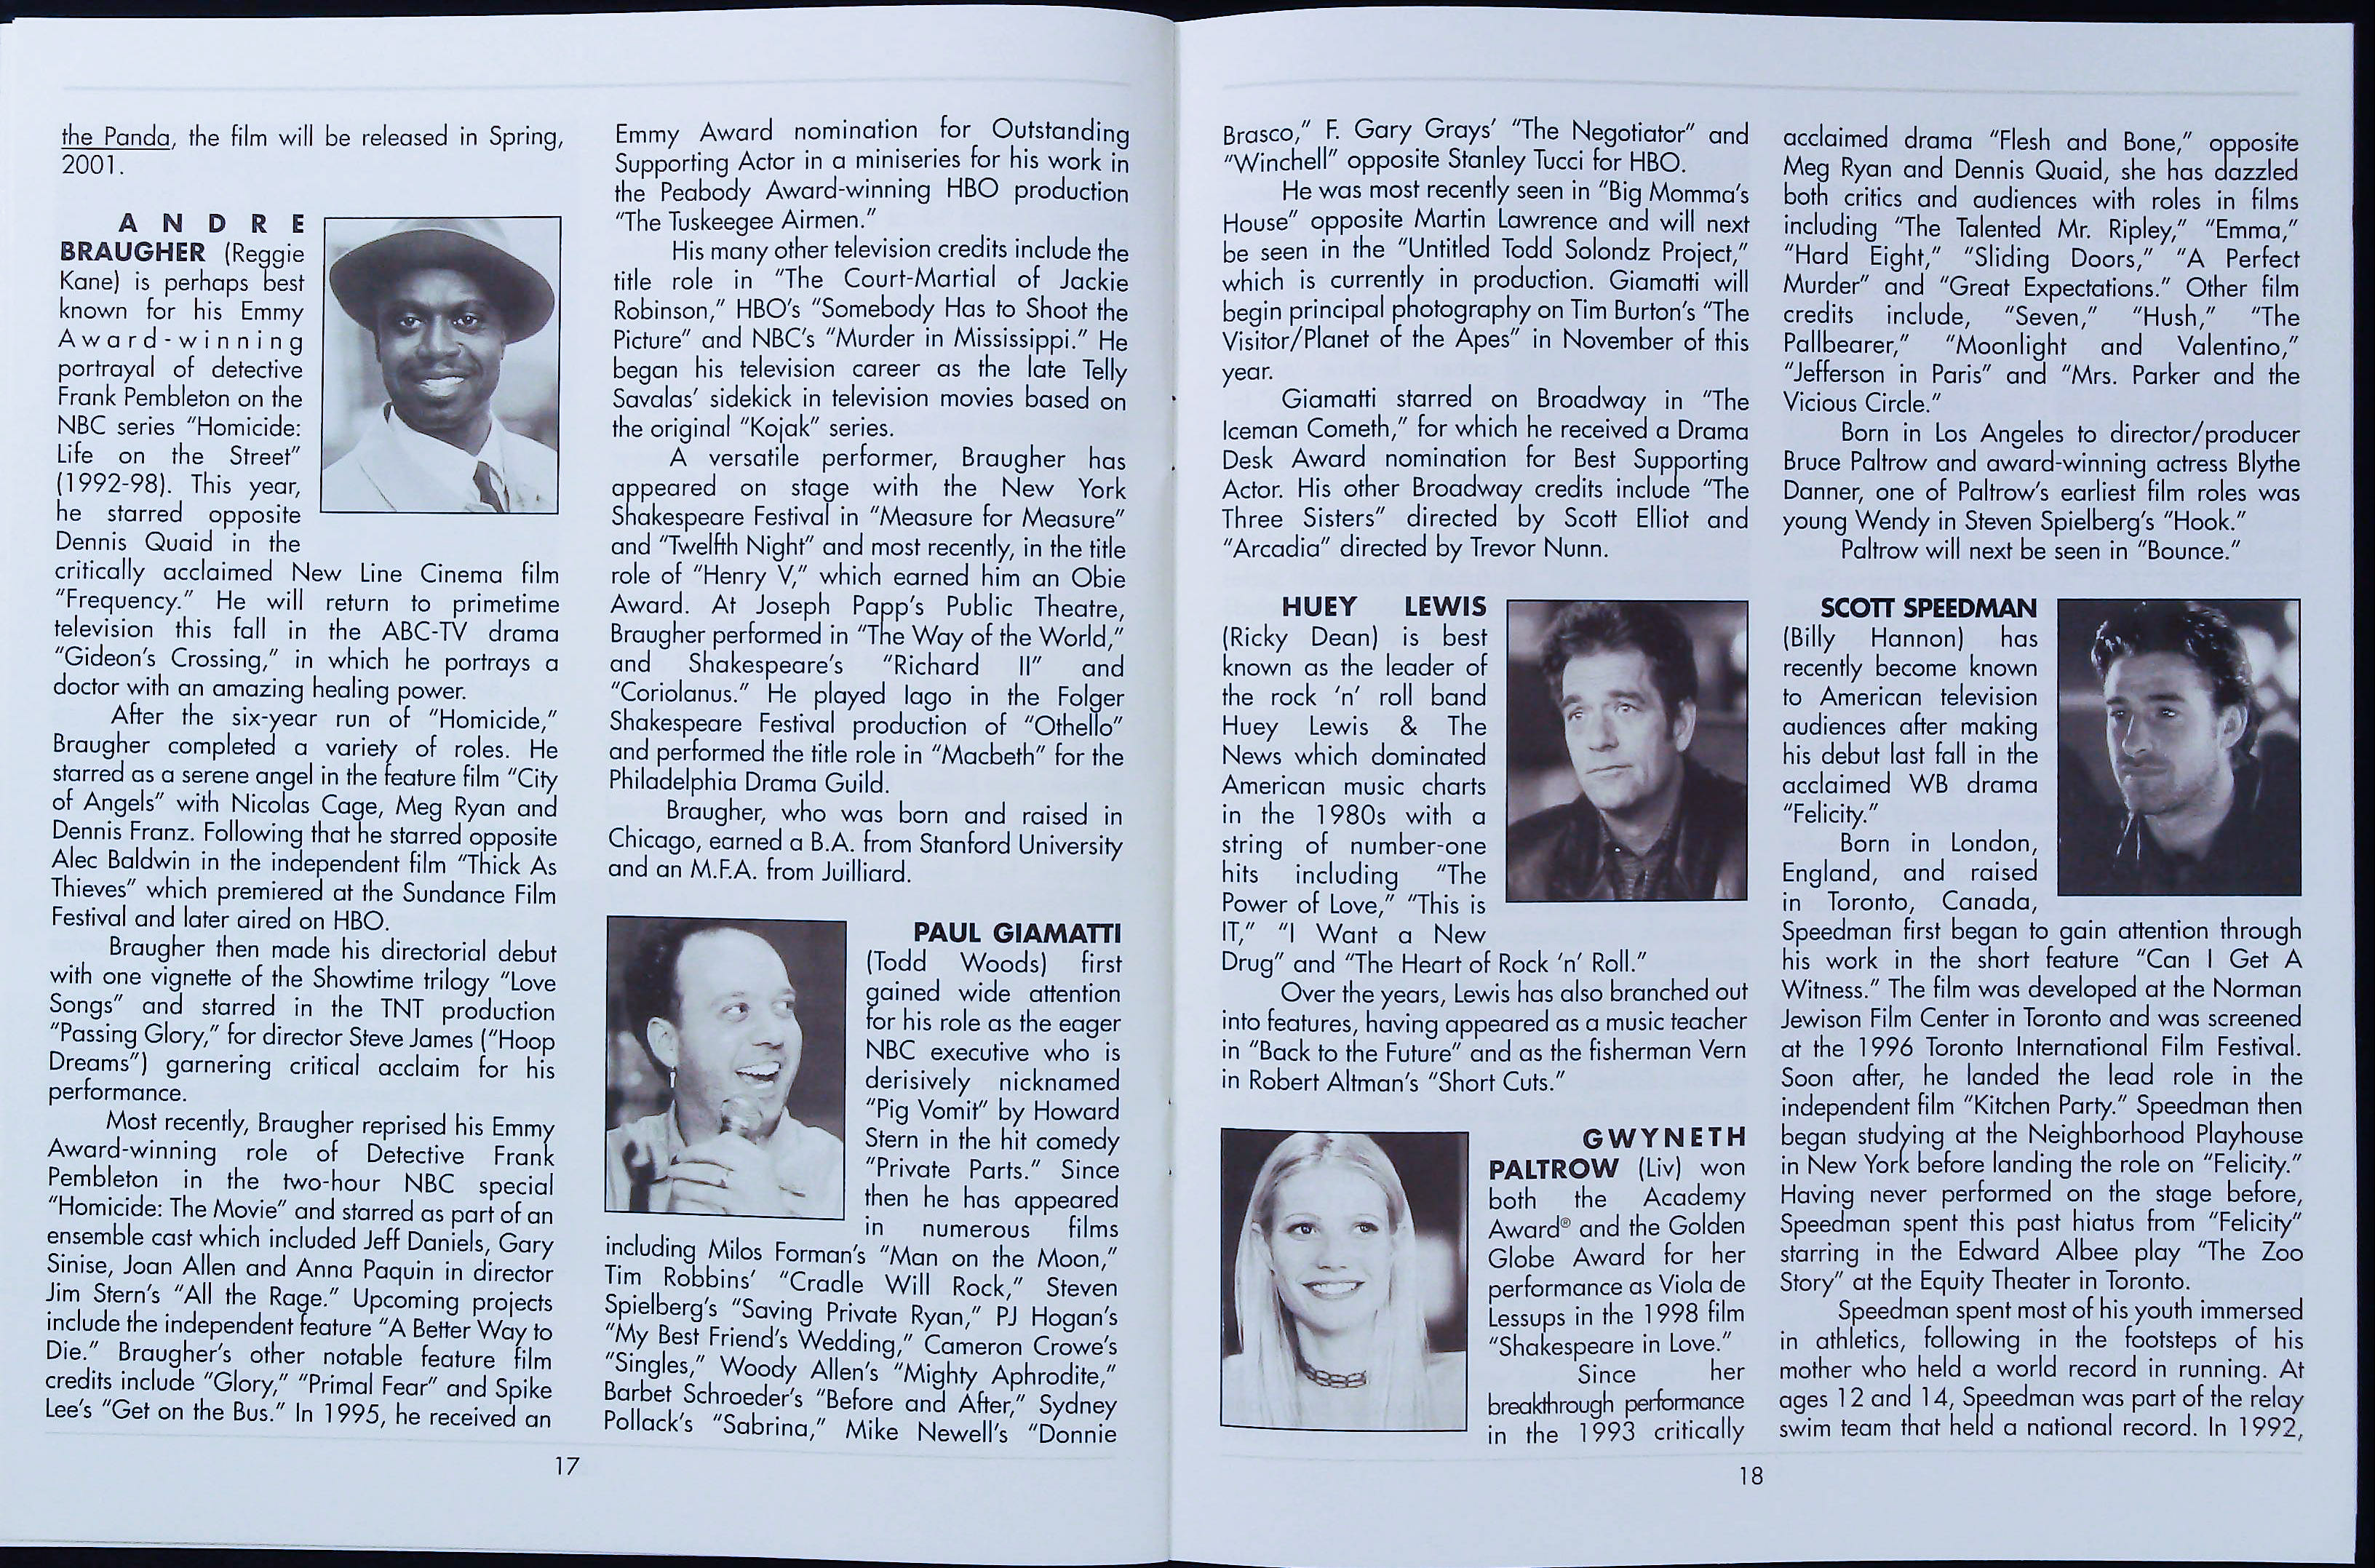 the Panda, the film will be released in Spring,
2001.
ANDRE
BRAUGHER (Reggie
Kane) is perhaps best
known for his Emmy
Award-winning
portrayal of detective
Frank Pembleton on the
NBC series "Homicide:
Life on the Street"
(1992-98). This year,
he starred opposite
Dennis Quaid in the
critically acclaimed New Line Cinema film
"Frequency." He will return to primetime
television this fall in the ABC-TV drama
"Gideon's Crossing," in which he portrays a
doctor with an amazing healing power.
After the six-year run of "Homicide,"
Braugher completed a variety of roles. He
starred as a serene angel in the feature film "City
of Angels" with Nicolas Cage, Meg Ryan and
Dennis Franz. Following that he starred opposite
Alec Baldwin in the independent film "Thick As
Thieves" which premiered at the Sundance Film
Festival and later aired on HBO.
Braugher then made his directorial debut
with one vignette of the Showtime trilogy "Love
Songs" and starred in the TNT production
"Passing Glory," for director Steve James ("Hoop
Dreams") garnering critical acclaim for his
performance.
Most recently, Braugher reprised his Emmy
Award-winning role of Detective Frank
Pembleton in the two-hour NBC special
"Homicide: The Movie" and starred as part of an
ensemble cast which included Jeff Daniels, Gary
Sinise, Joan Allen and Anna Paquin in director
Jim Stern's "All the Rage." Upcoming projects
include the independent feature "A Better Way to
Die." Braugher's other notable feature film
credits include "Glory," "Primal Fear" and Spike
Lee's "Get on the Bus." In 1995, he received an
Emmy Award nomination for Outstanding
Supporting Actor in a miniseries for his work in
the Peabody Award-winning HBO production
"The Tuskeegee Airmen."
His many other television credits include the
title role in "The Court-Martial of Jackie
Robinson," HBO's "Somebody Has to Shoot the
Picture" and NBC's "Murder in Mississippi." He
began his television career as the late Telly
Savalas' sidekick in television movies based on
the original "Kojak" series.
A versatile performer, Braugher has
appeared on stage with the New York
Shakespeare Festival in "Measure for Measure"
and "Twelfth Night" and most recently, in the title
role of "Henry V," which earned him an Obie
Award. At Joseph Papp's Public Theatre,
Braugher performed in "The Way of the World,"
and Shakespeare's "Richard II" and
"Coriolanus." He played Iago in the Folger
Shakespeare Festival production of "Othello"
and performed the title role in "Macbeth" for the
Philadelphia Drama Guild.
Braugher, who was born and raised in
Chicago, earned a B.A. from Stanford University
and an M.F.A. from Juilliard.
PAUL GIAMATTI
(Todd Woods) first
gained wide attention
for his role as the eager
NBC executive who is
derisively nicknamed
"Pig Vomit" by Howard
Stern in the hit comedy
"Private Parts." Since
then he has appeared
in numerous films
including Milos Forman's "Man on the Moon,"
Tim Robbins' "Cradle Will Rock," Steven
Spielberg's "Saving Private Ryan," PJ Hogan's
"My Best Friend's Wedding," Cameron Crowe's
"Singles," Woody Allen's "Mighty Aphrodite,"
Barbet Schroeder's "Before and After," Sydney
Pollack's "Sabrina," Mike Newell's "Donnie
17
Brasco," F. Gary Grays' "The Negotiator" and
"Winchell" opposite Stanley Tucci for HBO.
He was most recently seen in "Big Momma's
House" opposite Martin Lawrence and will next
be seen in the "Untitled Todd Solondz Project,"
which is currently in production. Giamatti will
begin principal photography on Tim Burton's "The
Visitor/Planet of the Apes" in November of this
year.
Giamatti starred on Broadway in "The
Iceman Cometh," for which he received a Drama
Desk Award nomination for Best Supporting
Actor. His other Broadway credits include "The
Three Sisters" directed by Scott Elliot and
"Arcadia" directed by Trevor Nunn.
HUEY LEWIS
(Ricky Dean) is best
known as the leader of
the rock 'n' roll band
Huey Lewis & The
News which dominated
American music charts
in the 1980s with a
string of number-one
hits including "The
Power of Love," "This is
IT," "I Want a New
Drug" and "The Heart of Rock 'n' Roll."
Over the years, Lewis has also branched out
into features, having appeared as a music teacher
in "Back to the Future" and as the fisherman Vern
in Robert Altman's "Short Cuts."
GWYNETH
PALTROW (Liv) won
both the Academy
Award® and the Golden
Globe Award for her
performance as Viola de
Lessups in the 1998 film
"Shakespeare in Love."
Since her
breakthrough performance
in the 1993 critically
acclaimed drama "Flesh and Bone," opposite
Meg Ryan and Dennis Quaid, she has dazzled
both critics and audiences with roles in films
including "The Talented Mr. Ripley," "Emma,"
"Hard Eight," "Sliding Doors," "A Perfect
Murder" and "Great Expectations." Other film
credits include, "Seven," "Hush," "The
Pallbearer," "Moonlight and Valentino,"
"Jefferson in Paris" and "Mrs. Parker and the
Vicious Circle."
Born in Los Angeles to director/producer
Bruce Paltrow and award-winning actress Blythe
Danner, one of Paltrow's earliest film roles was
young Wendy in Steven Spielberg's "Hook."
Paltrow will next be seen in "Bounce."
SCOTT SPEEDMAN
(Billy Hannon) has
recently become known
to American television
audiences after making
his debut last fall in the
acclaimed WB drama
"Felicity."
Born in London,
England, and raised
in Toronto, Canada,
Speedman first began to gain attention through
his work in the short feature "Can I Get A
Witness." The film was developed at the Norman
Jewison Film Center in Toronto and was screened
at the 1996 Toronto International Film Festival.
Soon after, he landed the lead role in the
independent film "Kitchen Party." Speedman then
began studying at the Neighborhood Playhouse
in New York before landing the role on "Felicity."
Having never performed on the stage before,
Speedman spent this past hiatus from "Felicity"
starring in the Edward Albee play "The Zoo
Story" at the Equity Theater in Toronto.
Speedman spent most of his youth immersed
in athletics, following in the footsteps of his
mother who held a world record in running. At
ages 12 and 14, Speedman was part of the relay
swim team that held a national record. In 1992,
18